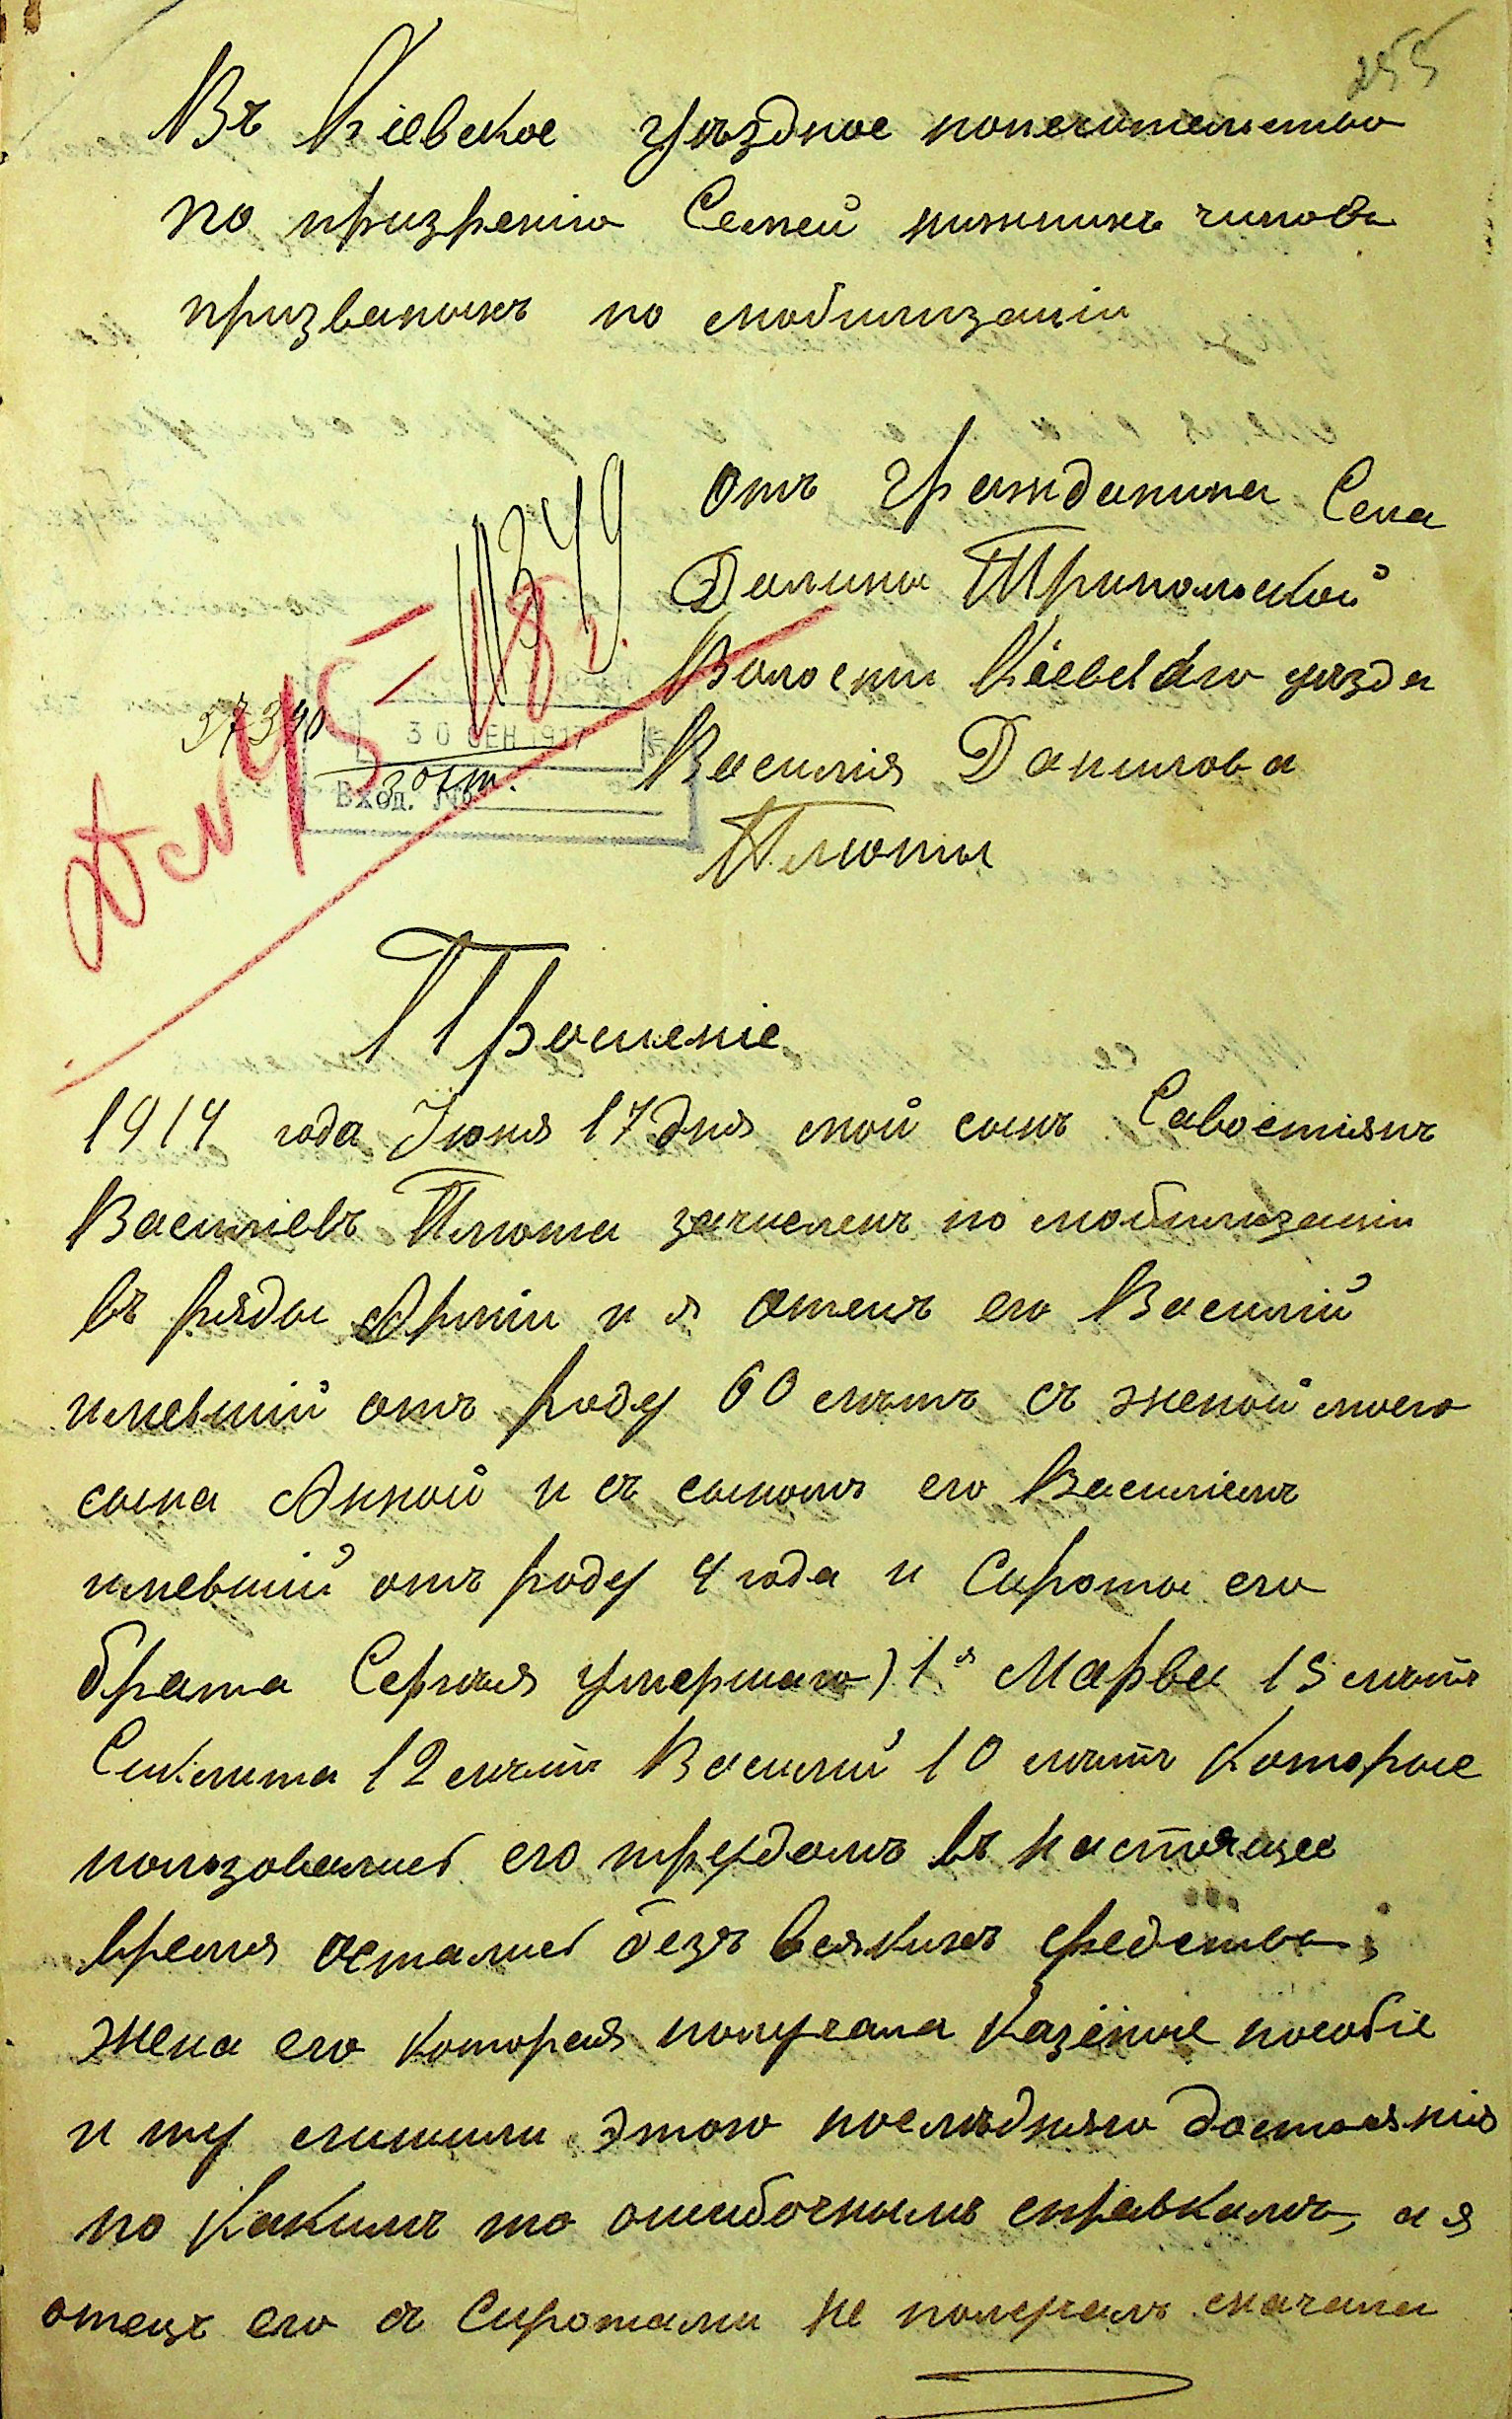 255
Въ Кіевское уѣздное попечительство
по призренію Семей нижнихъ чиновъ
призваныхъ по мобилизаціи
отъ Гражданина Села
Долины Трипольской
Волости Кіевскаго уѣзда
Василія Данилова
Плюты
30 СЕН 1917
Вход. №
Прошеніе
1914 года Іюня 17 дня мой сынъ Савостіянъ
Василіевъ Плюта зачисленъ по мобилизаціи
въ ряды Арміи и я отецъ его Василій
имевшій отъ роду 60 лѣтъ съ женой моего
сына Анной и съ сыномъ его Василіемъ
имевшій отъ роду 4 года и Сироты его
брата Сергѣя умершаго) 1я Марва 15 лѣтъ
12 лѣтъ Василий 10 лѣтъ Которые
пользовались его трудомъ въ настоящее
время остались безъ всякихъ средствъ;
жена его которая получала Казёное пособіе
и ту лишили этого последняго достоянія
по Какимъ то ошибочнымъ справкамъ, а я
отецъ его съ Сиротами не получалъ сначала